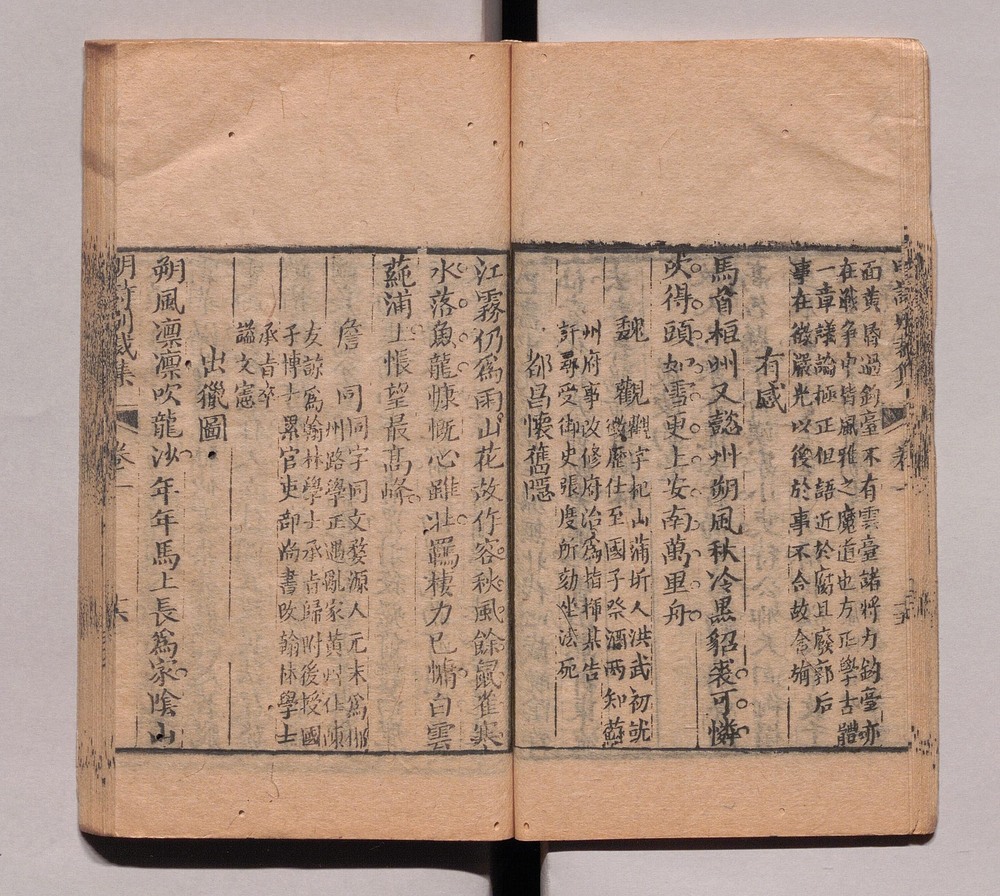 面黃屩過釣臺不有雲臺諸將力釣臺亦
在戰爭中皆風雅之魔道也方正學古體
一章議論極正但語近於腐且廢郭后
事在嚴光以後於事不合故舍旃
有感
馬首桓州又懿州朔風秋冷黑貂裘可憐
吹得頭如雪更上安南萬里舟
魏觀
觀字杞山蒲圻人洪武初就
徵歷仕至國子祭酒兩知蘇
州府事改修府治為指揮某告
訐尋受御史張度所劾坐法死
都昌懷舊隱
江霧仍為雨山花故作容秋風餘鼠雀寒
水落魚龍慷慨心雖壯羈棲力已慵白雲
蒓浦上悵望最高峰
詹同
同字同文婺源人元末為郴
州路學正遇亂家黃州仕陳
友諒為翰林學士承旨歸附後授國
子博士累官吏部尚書改翰林學士
承旨卒
諡文憲
出獵圖
朔風凛凛吹龍沙年年馬上長為家陰山
明詩別裁集 卷一